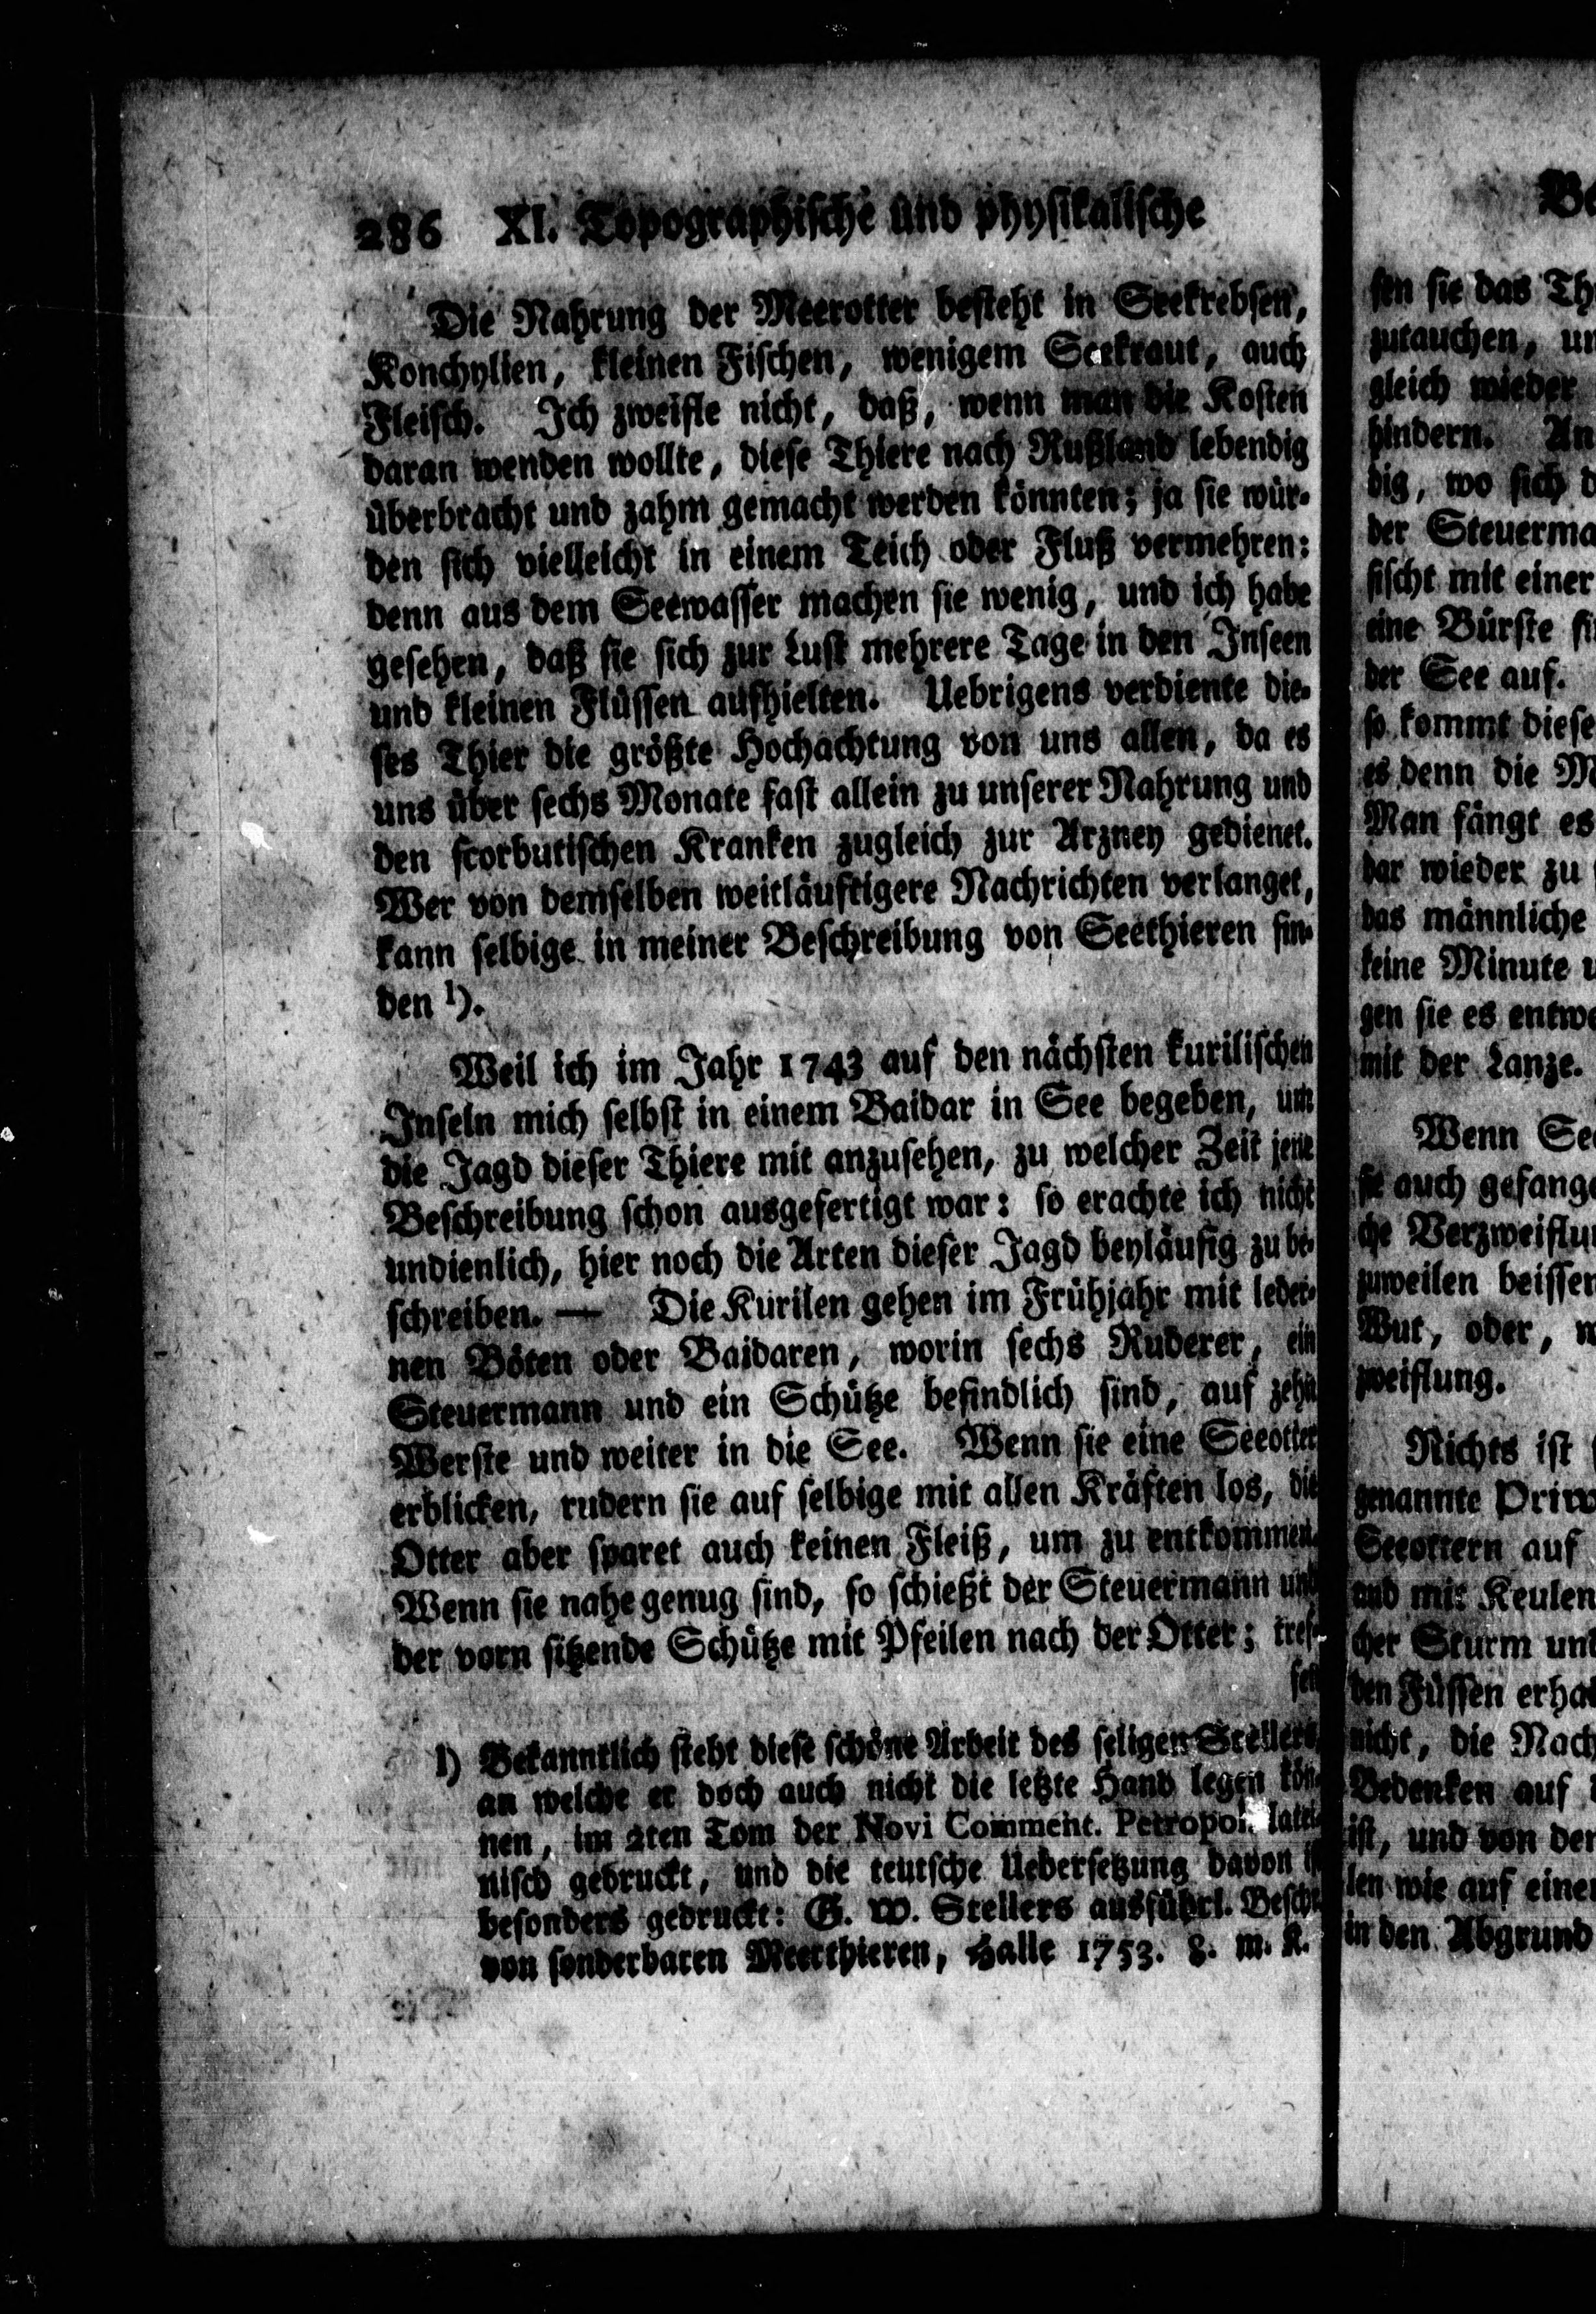 286 XI. Topographische und physikalische
Die Nahrung der Meerotter besteht in Seekrebsen,
Konchylien, kleinen Fischen, wenigem Seekraut, auch
Fleisch. Ich zweifle nicht, daß, wenn man die Kosten
daran wenden wollte, diese Thiere nach Rußland lebendig
überbracht und zahm gemacht werden könnten; ja sie wür-
den sich vielleicht in einem Teich oder Fluß vermehren:
denn aus dem Seewasser machen sie wenig, und ich habe
gesehen, daß sie sich zur Lust mehrere Tage in den Inseen
und kleinen Flüssen aufhielten. Uebrigens verdiente die-
ses Thier die größte Hochachtung von uns allen, da es
uns über sechs Monate fast allein zu unserer Nahrung und
den scorbutischen Kranken zugleich zur Arzney gedienet.
Wer von demselben weitläuftigere Nachrichten verlanget,
kann selbige in meiner Beschreibung von Seethieren fin-
den l).
Weil ich im Jahr 1743 auf den nächsten kurilischen
Inseln mich selbst in einem Baidar in See begeben, um
die Jagd dieser Thiere mit anzusehen, zu welcher Zeit jene
Beschreibung schon ausgefertigt war: so erachte ich nicht
undienlich, hier noch die Arten dieser Jagd beyläufig zu be-
schreiben. — Die Kurilen gehen im Frühjahr mit leder-
nen Böten oder Baidaren, worin sechs Ruderer, ein
Steuermann und ein Schütze befindlich sind, auf zehn
Werste und weiter in die See. Wenn sie eine Seeotter
erblicken, rudern sie auf selbige mit allen Kräften los, die
Otter aber sparet auch keinen Fleiß, um zu entkommen.
Wenn sie nahe genug sind, so schießt der Steuermann und
der vorn sitzende Schütze mit Pfeilen nach der Otter; tref-
fen
l) Bekanntlich steht diese schöne Arbeit des seligen Stellers,
an welche er doch auch nicht die letzte Hand legen kön-
nen, im 2ten Tom der Novi Comment. Petropol. latei-
nisch gedruckt, und die teutsche Uebersetzung davon ist
besonders gedruckt: G. W. Stellers ausführl. Beschr.
von sonderbaren Meerthieren, Halle 1753. 8. m. K.
fen sie das Th
zutauchen, un
gleich wieder
hindern. An
dig, wo sich d
der Steuerma
fischt mit einer
eine Bürste si
der See auf.
so kommt diese
es denn die M
Man fängt es
dar wieder zu
das männliche
keine Minute
gen sie es entwe
mit der Lanze.
Wenn See
sie auch gefange
che Verzweiflun
zuweilen beissen
Wut, oder, w
zweiflung.
Nichts ist
genannte Priw
Seeottern auf
und mit Keulen
cher Sturm und
den Füssen erhal
nicht, die Nach
Bedenken auf
ist, und von der
len wie auf einer
in den Abgrund